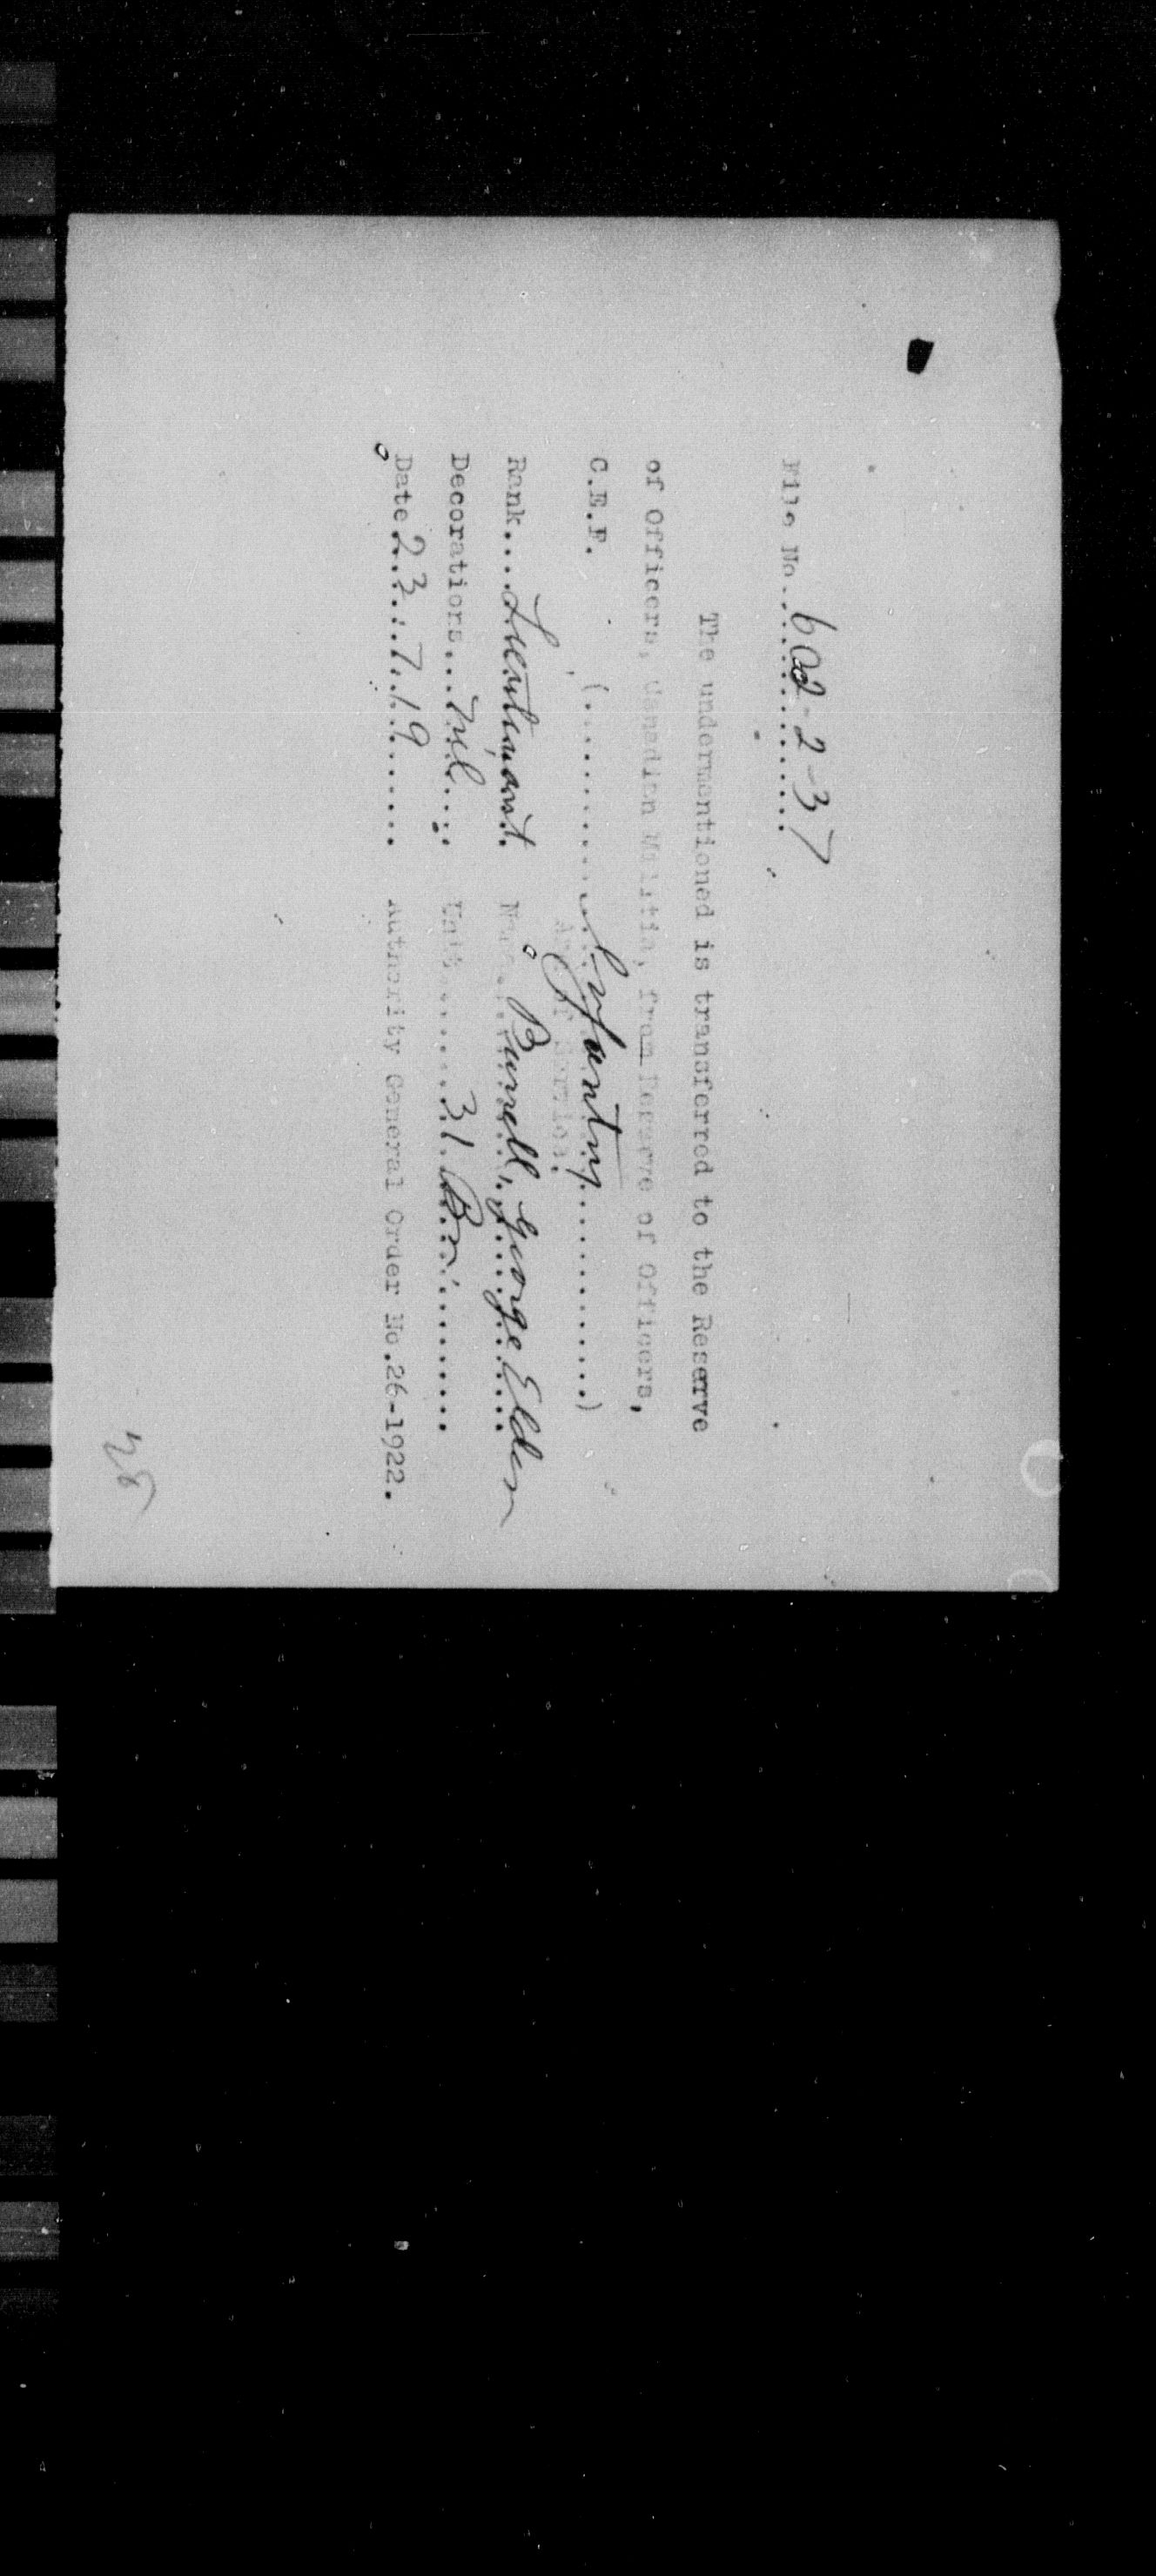 File No. 602-2-37
The undermentioned is transferred to the Reserve
of Officers, Canadian Militia, from Reserve of Officers,
C.E.F. (..........Infantry............)
Arm of Service.
Rank....Lieutenant. Name. Burrell, George Elden
Decorations...Nil.... Unit.......31.Bn...........
Date 23.7.19....... Authority General Order No.26-1922.